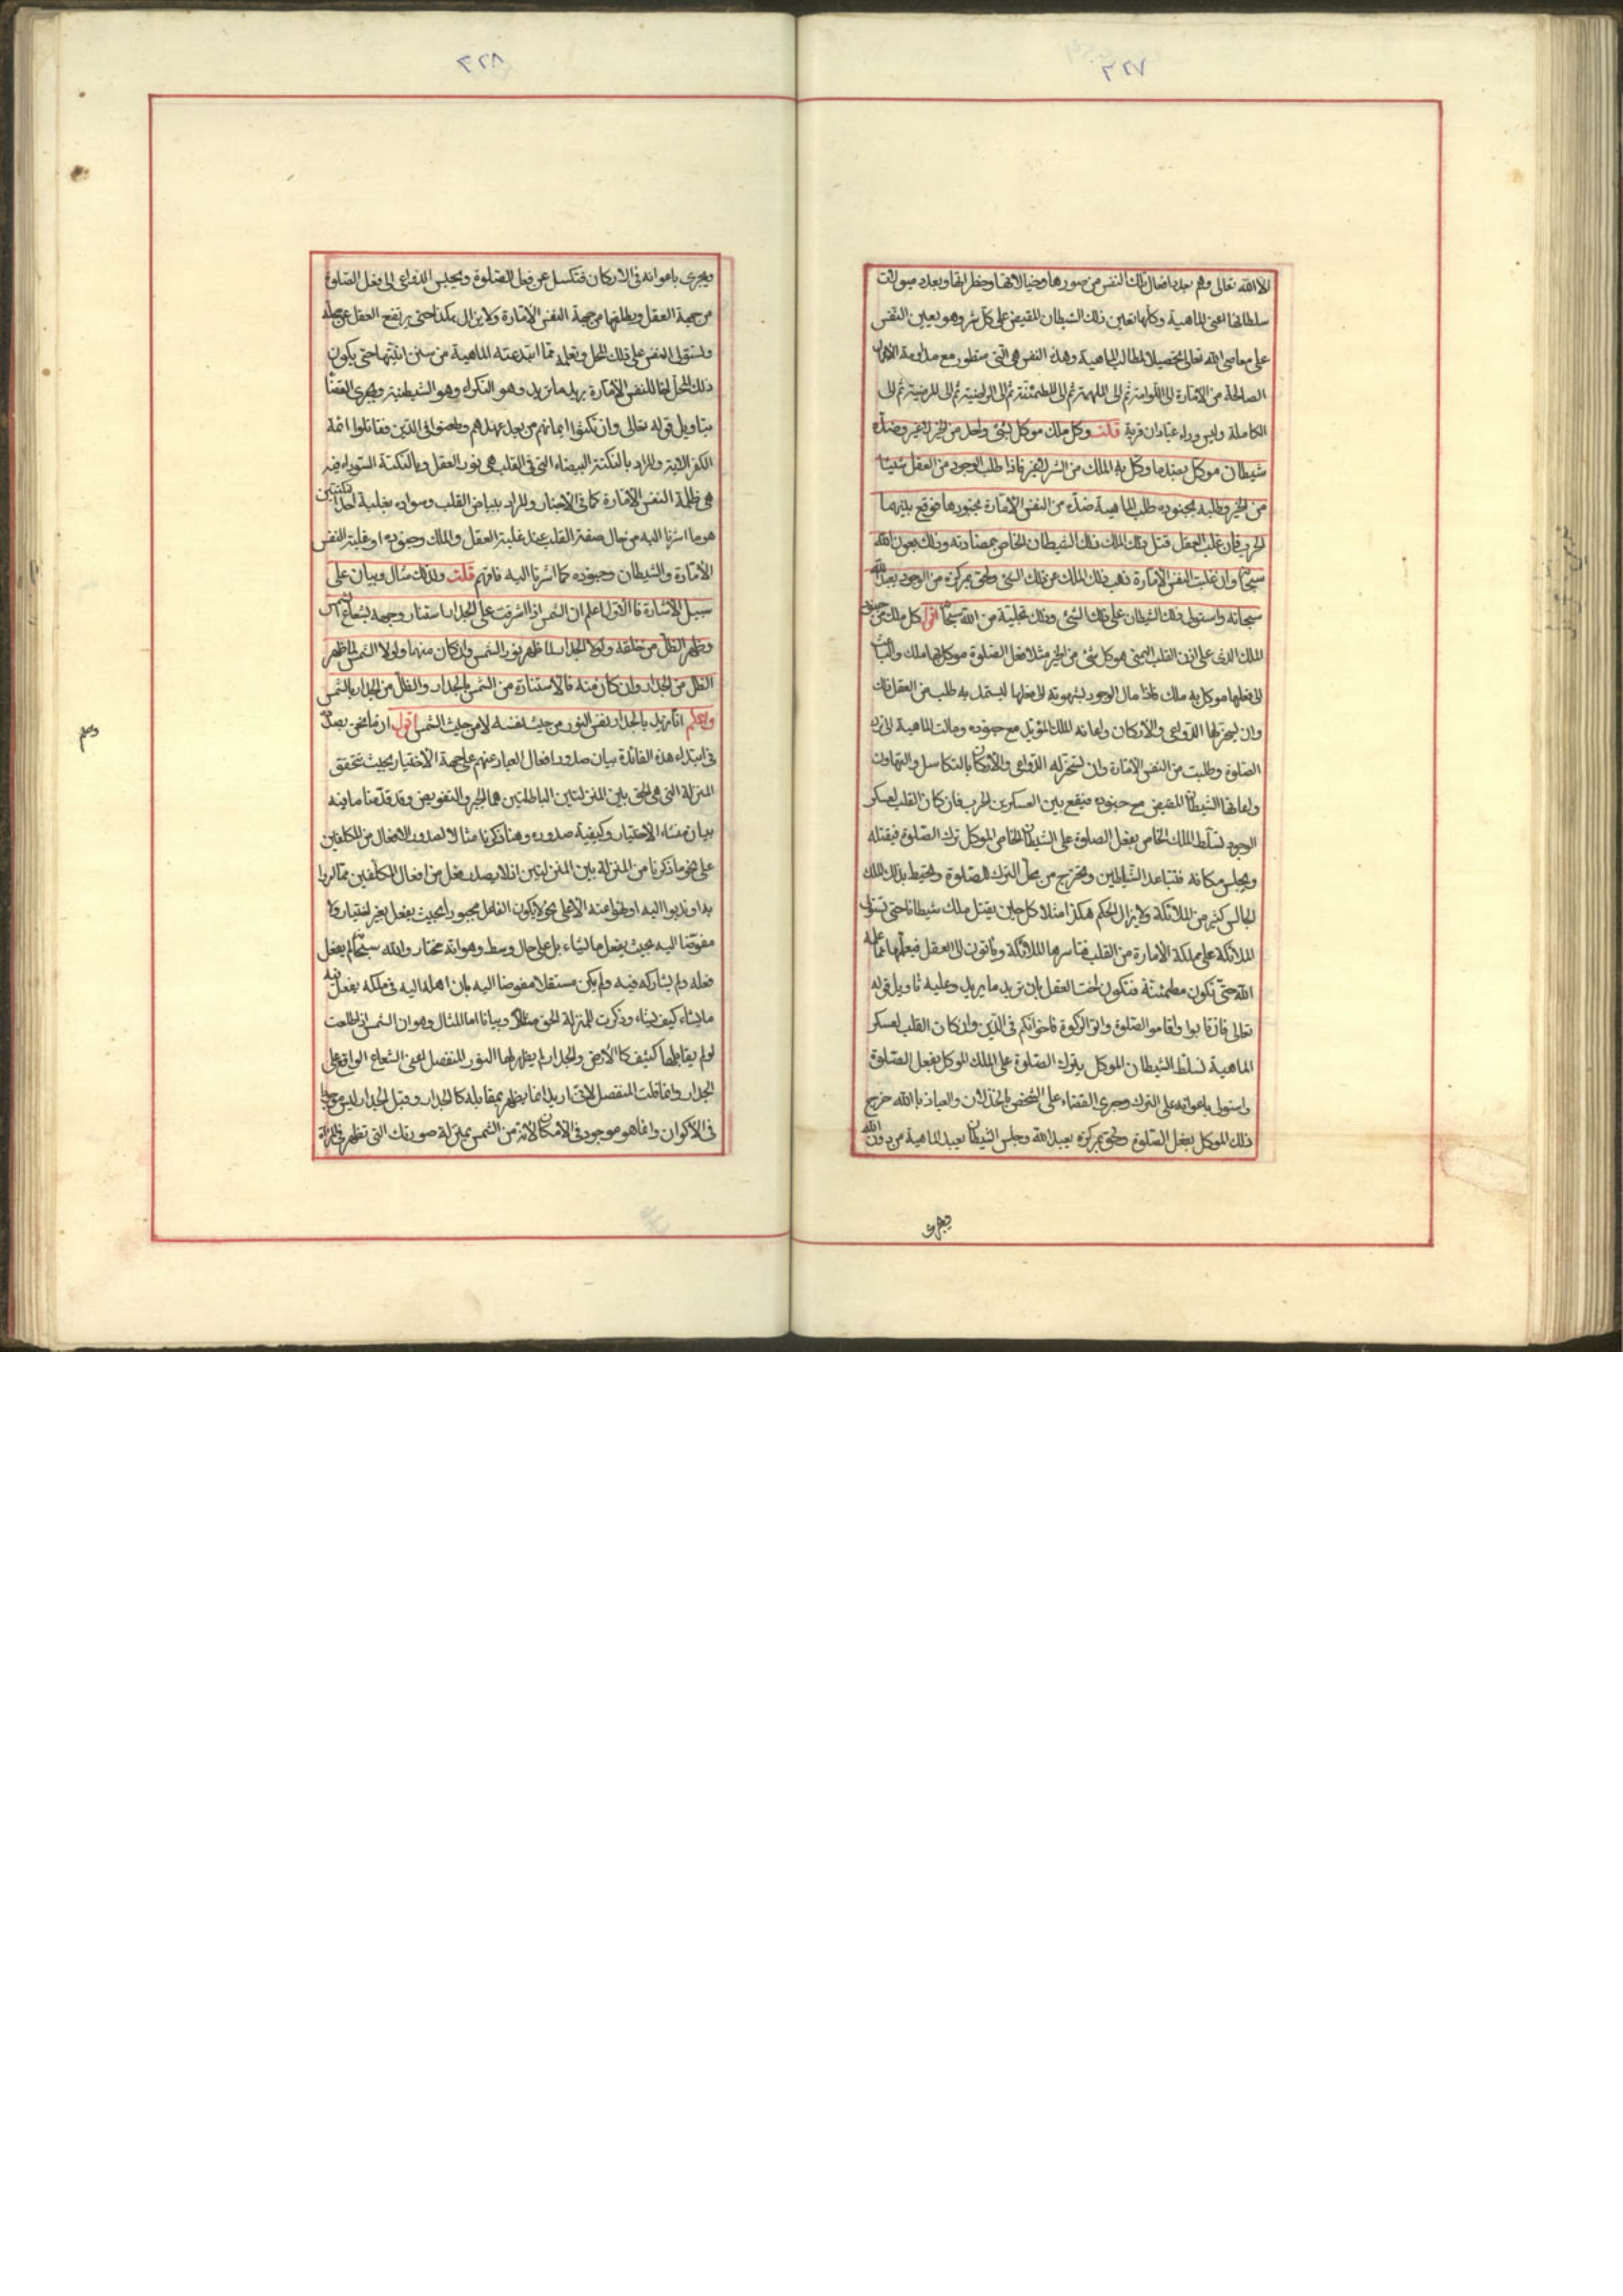 ٣٢٧
الا الله تعالى وهم بعدد افعال تلك النفس من صورها وخيالاتها وخطراتها وبعدد ميولات
سلطانها اعنى الماهية وكلها تعين ذلك الشيطان المقيض على كل شر وهو يعين النفس
على معاصى الله تعالى تحصيلا لمطالب الماهية وهذه النفس هى التى ستطور مع مداومة الاعمال
الصالحة من الامّارة الى اللوامة ثم الى الملهمة ثم الى المطمئنة ثم الى الراضية ثم الى المرضية ثم الى
الكاملة وليس وراء عبادان قرية قلت وكل ملك موكل بشئ واحد من الخير لاغير وضدّه
شيطان موكل بضد ما وكل به الملك من الشر لاغير فاذا طلب الوجود من العقل شيئا
من الخير وطلبه بجنوده طلب الماهية ضدّه من النفس الامّارة بجنودها فوقع بينهما
الحرب فان غلب العقل قتل ذلك الملك ذلك الشيطان الخاص بمضادته وذلك بعون الله
سبحانه وان غلبت النفس الامّارة ذهب ذلك الملك عن ذلك الشئ ولحق بمركزه من الوجود يعبد الله
سبحانه واستولى ذلك الشيطان على ذلك الشئ وذلك بتخلية من الله سبحانه اقول كل ملك من جنود
الملك الذى على اذن القلب اليمنى هو كل شئ من الخير مثلا فعل الصلوة موكل بها ملك والباعث
الى فعلها موكل به ملك فاذا مال الوجود بشهوته الى فعلها ليستمد به طلب من العقل ذلك
وان يسخر لها الدواعى والاركان واعانه الملك المؤيد مع جنوده ومالت الماهية الى ترك
الصلوة وطلبت من النفس الامّارة وان تسخر له الدواعى والاركان بالتكاسل والتهاون
واعانها الشيطان المقيض مع جنوده فيقع بين العسكرين الحرب فان كان القلب لعسكر
الوجود تسلّط الملك الخاص بفعل الصلوة على الشيطان الخاص الموكل بترك الصلوة فيقتله
ويجلس مكانه فتباعد الشياطين وتخرج من محل الترك للصلوة وتحيط بذلك الملك
الجالس كثير من الملائكة ولا يزال الحكم هكذا مثلا كل حين يقتل ملك شيطانا حتى تستولى
الملائكة على مملكة الامارة من القلب فتأسرها الملائكة ويأتون الى العقل فيعلّمها مما علمه
الله حتى تكون مطمئنّة فتكون اخت العقل بان تريد ما يريد وعليه تأويل قوله
تعالى فان تابوا واقاموا الصلوة واتوا الزكوة فاخوانكم فى الدين وان كان القلب لعسكر
الماهية تسلّط الشيطان الموكل بترك الصلوة على الملك الموكل بفعل الصلوة
واستولى باعوانه على الترك وجرى القضاء على الشخص بالخذلان والعياذ بالله خرج
ذلك الموكل بفعل الصلوة ولحق بمركزه يعبد الله وجلس الشيطان يعبد الماهية من دون الله
ويجرى
٣٢٨
ويجرى باعوانه فى الاركان فتكسل عن فعل الصلوة ويحبس الدواعى الى فعل الصلوة
من جهة العقل ويطلقها من جهة النفس الامّارة ولا يزال هكذا حتى يرتفع العقل عن محله
وتستولى النفس على ذلك المحل وتعلمه مما ابتدعته الماهية من سنن انيّتها حتى يكون
ذلك المحل اخا للنفس الامّارة يريد ما تريد وهو النكراء وهو الشيطنة ويجرى القضاء
بتاويل قوله تعالى وان نكثوا ايمانهم من بعد عهدهم وطعنوا فى الدين فقاتلوا ائمة
الكفر الاية والمراد بالنكتة البيضاء التى فى القلب هى نور العقل وبالنكتة السوداء فيه
هى ظلمة النفس الامّارة كما فى الاخبار والمراد ببياض القلب وسواده بغلبة احد النكتتين
هو ما اشرنا اليه من حال صفة القلب عند غلبة العقل والملك وجنوده او غلبة النفس
الامّارة والشيطان وجنوده كما اشرنا اليه فافهم قلت ولذلك مثال وبيان على
سبيل الاشارة فالاول اعلم ان الشمس اذا اشرقت على الجدار استنار وجهه بشعاع الشمس
وظهر الظل من خلفه ولولا الجدار لما ظهر نور الشمس وان كان منها ولولا الشمس لما ظهر
الظل من الجدار وان كان منه فالاستنارة من الشمس بالجدار والظل من الجدار بالشمس
واعلم انا نريد بالجدار نفس النور من حيث نفسه لا من حيث الشمس اقول ان ما نحن بصدده
فى ابتداء هذه الفائدة بيان صدور افعال العباد عنهم على جهة الاختيار بحيث تتحقق
المنزلة التى هى الحق بين المنزلتين الباطلتين هما الجبر والتفويض وقد قدّمنا ما فيه
بيان منشاء الاختيار وكيفية صدوره وهنا ذكرنا مثالا لصدور الافعال من المكلفين
على نحو ما ذكرنا من المنزلة بين المنزلتين اذ لا يصدر فعل من افعال المكلّفين مما امروا
به او ندبوا اليه او نهوا عنه الا على نحو لا يكون الفاعل مجبورا بحيث يفعل بغير اختيار ولا
مفوّضا اليه بحيث يفعل ما يشاء بل على حال وسط وهو انه مختار والله سبحانه لم يفعل
فعله ولم يشاركه فيه ولم يكن مستقلا مفوضا اليه بان اهمله اليه فى ملكه يفعل فيه
ما يشاء كيف يشاء وذكرت للمنزلة الحق مثالا وبيانا اما المثال وهو ان الشمس اذا طلعت
لو لم يقابلها كثيف كالارض والجدار لم يظهر لها النور المنفصل اعنى الشعاع الواقع على
الجدار وانما قلت المنفصل لانى اريد انما يظهر بمقابلة كالجدار وقبل الجدار ليس موجودا
فى الاكوان وانما هو موجود فى الامكان لانه من الشمس بمنزلة صورتك التى تظهر فى المرآة